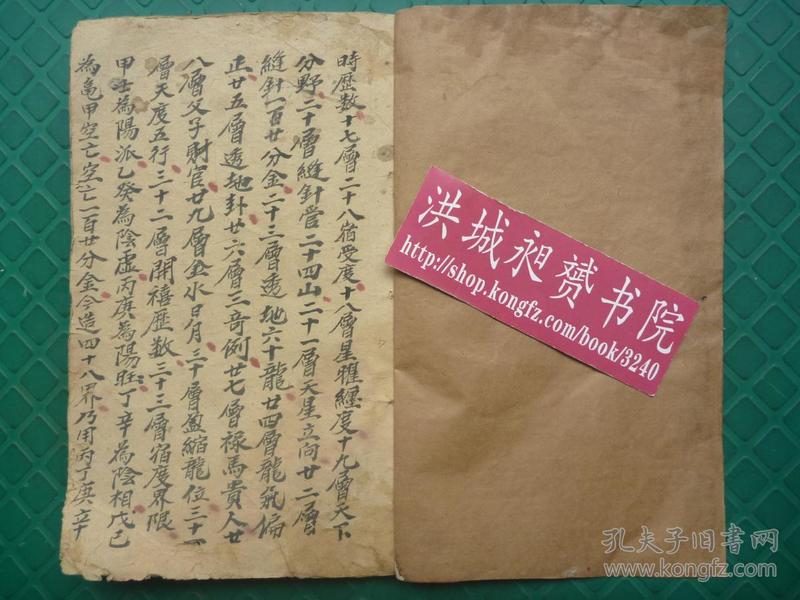 時歷数十七層二十八宿受度十八層星躔經度十九層天下
分野二十層縫針管二十四山二十一層天星立向廿二層
縫針一百廿分金二十三層透地六十龍廿四層龍氣偏
正廿五層透地卦廿六層三奇例廿七層禄馬貴人廿
八層父子財官廿九層金水日月三十層盈縮龍位三十一
層天度五行三十二層開禧歷数三十三層宿度界限
甲壬為陽派乙癸為陰虛丙庚為陽旺丁辛為陰相戊己
為亀甲空亡空亡一百廿分金今造四十八界乃用丙丁庚辛
洪城昶赟书院
http://shop.kongfz.com/book/3240
孔夫子旧书网
www.kongfz.com